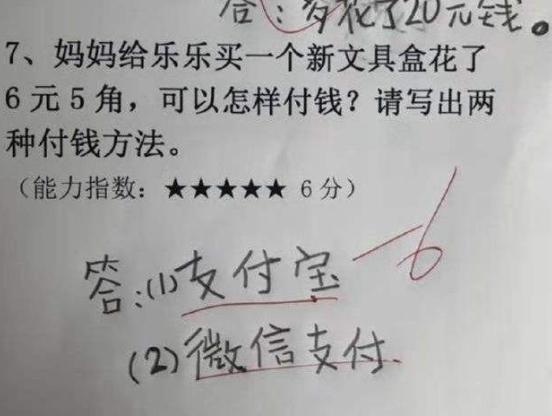 答：多花了20元钱。
7、妈妈给乐乐买一个新文具盒花了
6元5角，可以怎样付钱？请写出两
种付钱方法。
（能力指数：★★★★★ 6分）
-6
答：(1)支付宝
(2)微信支付.